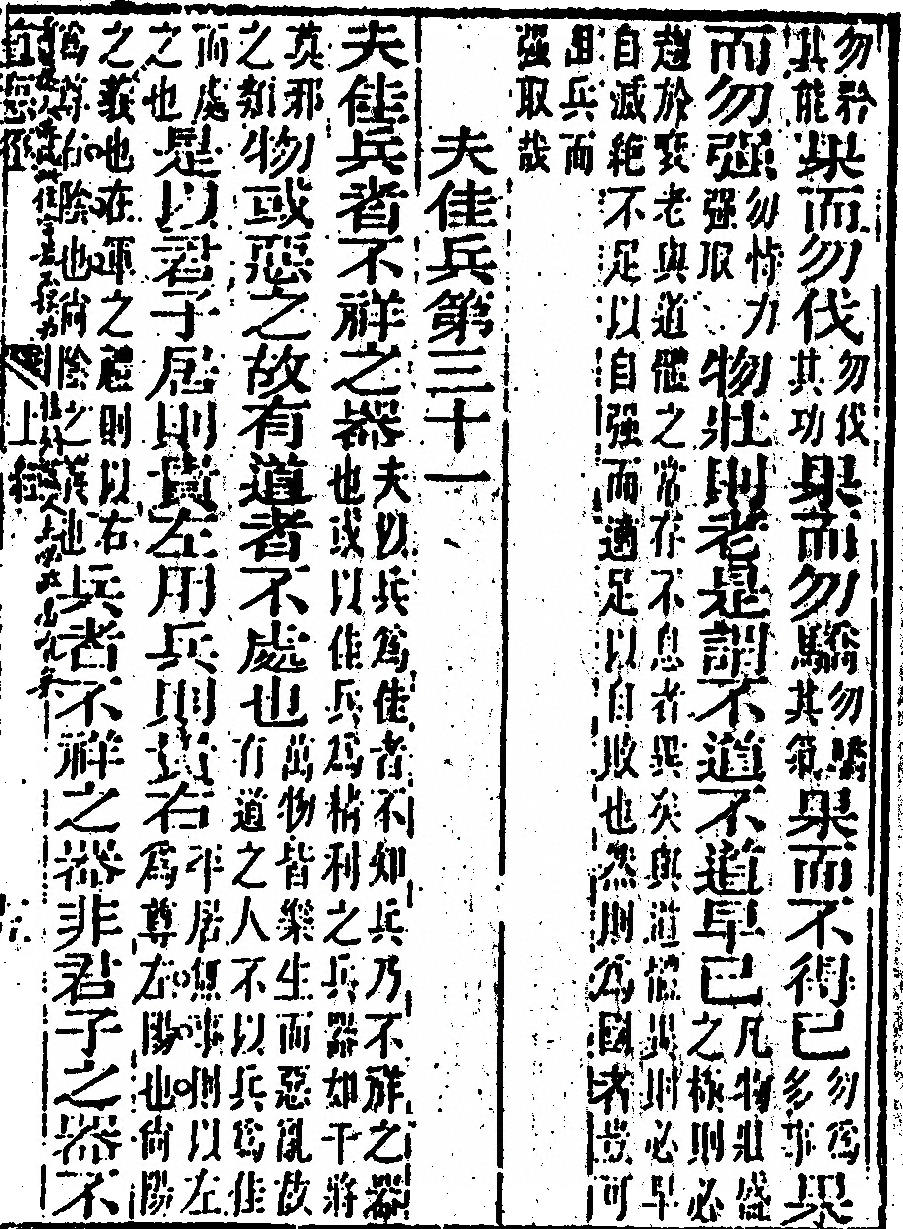 勿矜其能果而勿伐勿伐其功果而勿驕勿驕其氣果而不得已勿為多事果
而勿强勿怙力强取物壯則老是謂不道不道早已凡物壯盛之極則必
趨於衰老與道體之常存不息者異矣與道體異則必早
自滅絕不足以自强而適足以自敗也然則為國者豈可
用兵而
强取哉
夫佳兵第三十一
夫佳兵者不祥之器夫以兵為佳者不知兵乃不祥之器也或以佳兵為精利之兵器如干將
莫邪之類物或惡之故有道者不處也萬物皆樂生而惡亂故有道之人不以兵為佳
而處之也是以君子居則貴左用兵則貴右平居無事則以左為尊左陽也尚陽
之義也在軍之禮則以右為尊右陰也尚陰之義也兵者不祥之器非君子之器不